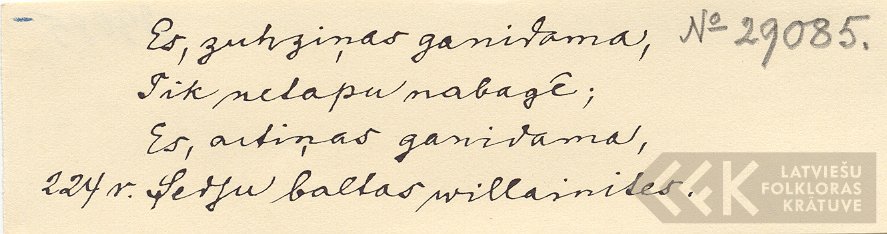 Es, zuhziņas ganidama, № 29085.
Tik netapu nabagê;
Es, aitiņas ganidama,
224 r. Sedſu baltas willainites.
LATVIEŠU
FOLKLORAS
KRĀTUVE